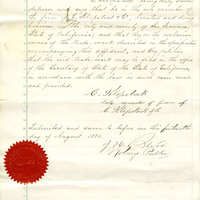 depose and say that he is the sole member of
the firm of C. Klopstock & Co., located and doing
business in the city and county of San Francisco
State of California; and that he is the exclusive
owner of the Trade-mark described in the
preceding this affidavit, and
that the said Trade-mark may be filed in the office
of the Secretary of State of the State of California,
in accordance with the law in such case made
and provided.
C. Klopstock
Sole member of firm of
C. Klopstock & Co
Subscribed and sworn to before me this
day of August 1880.
Notary Public